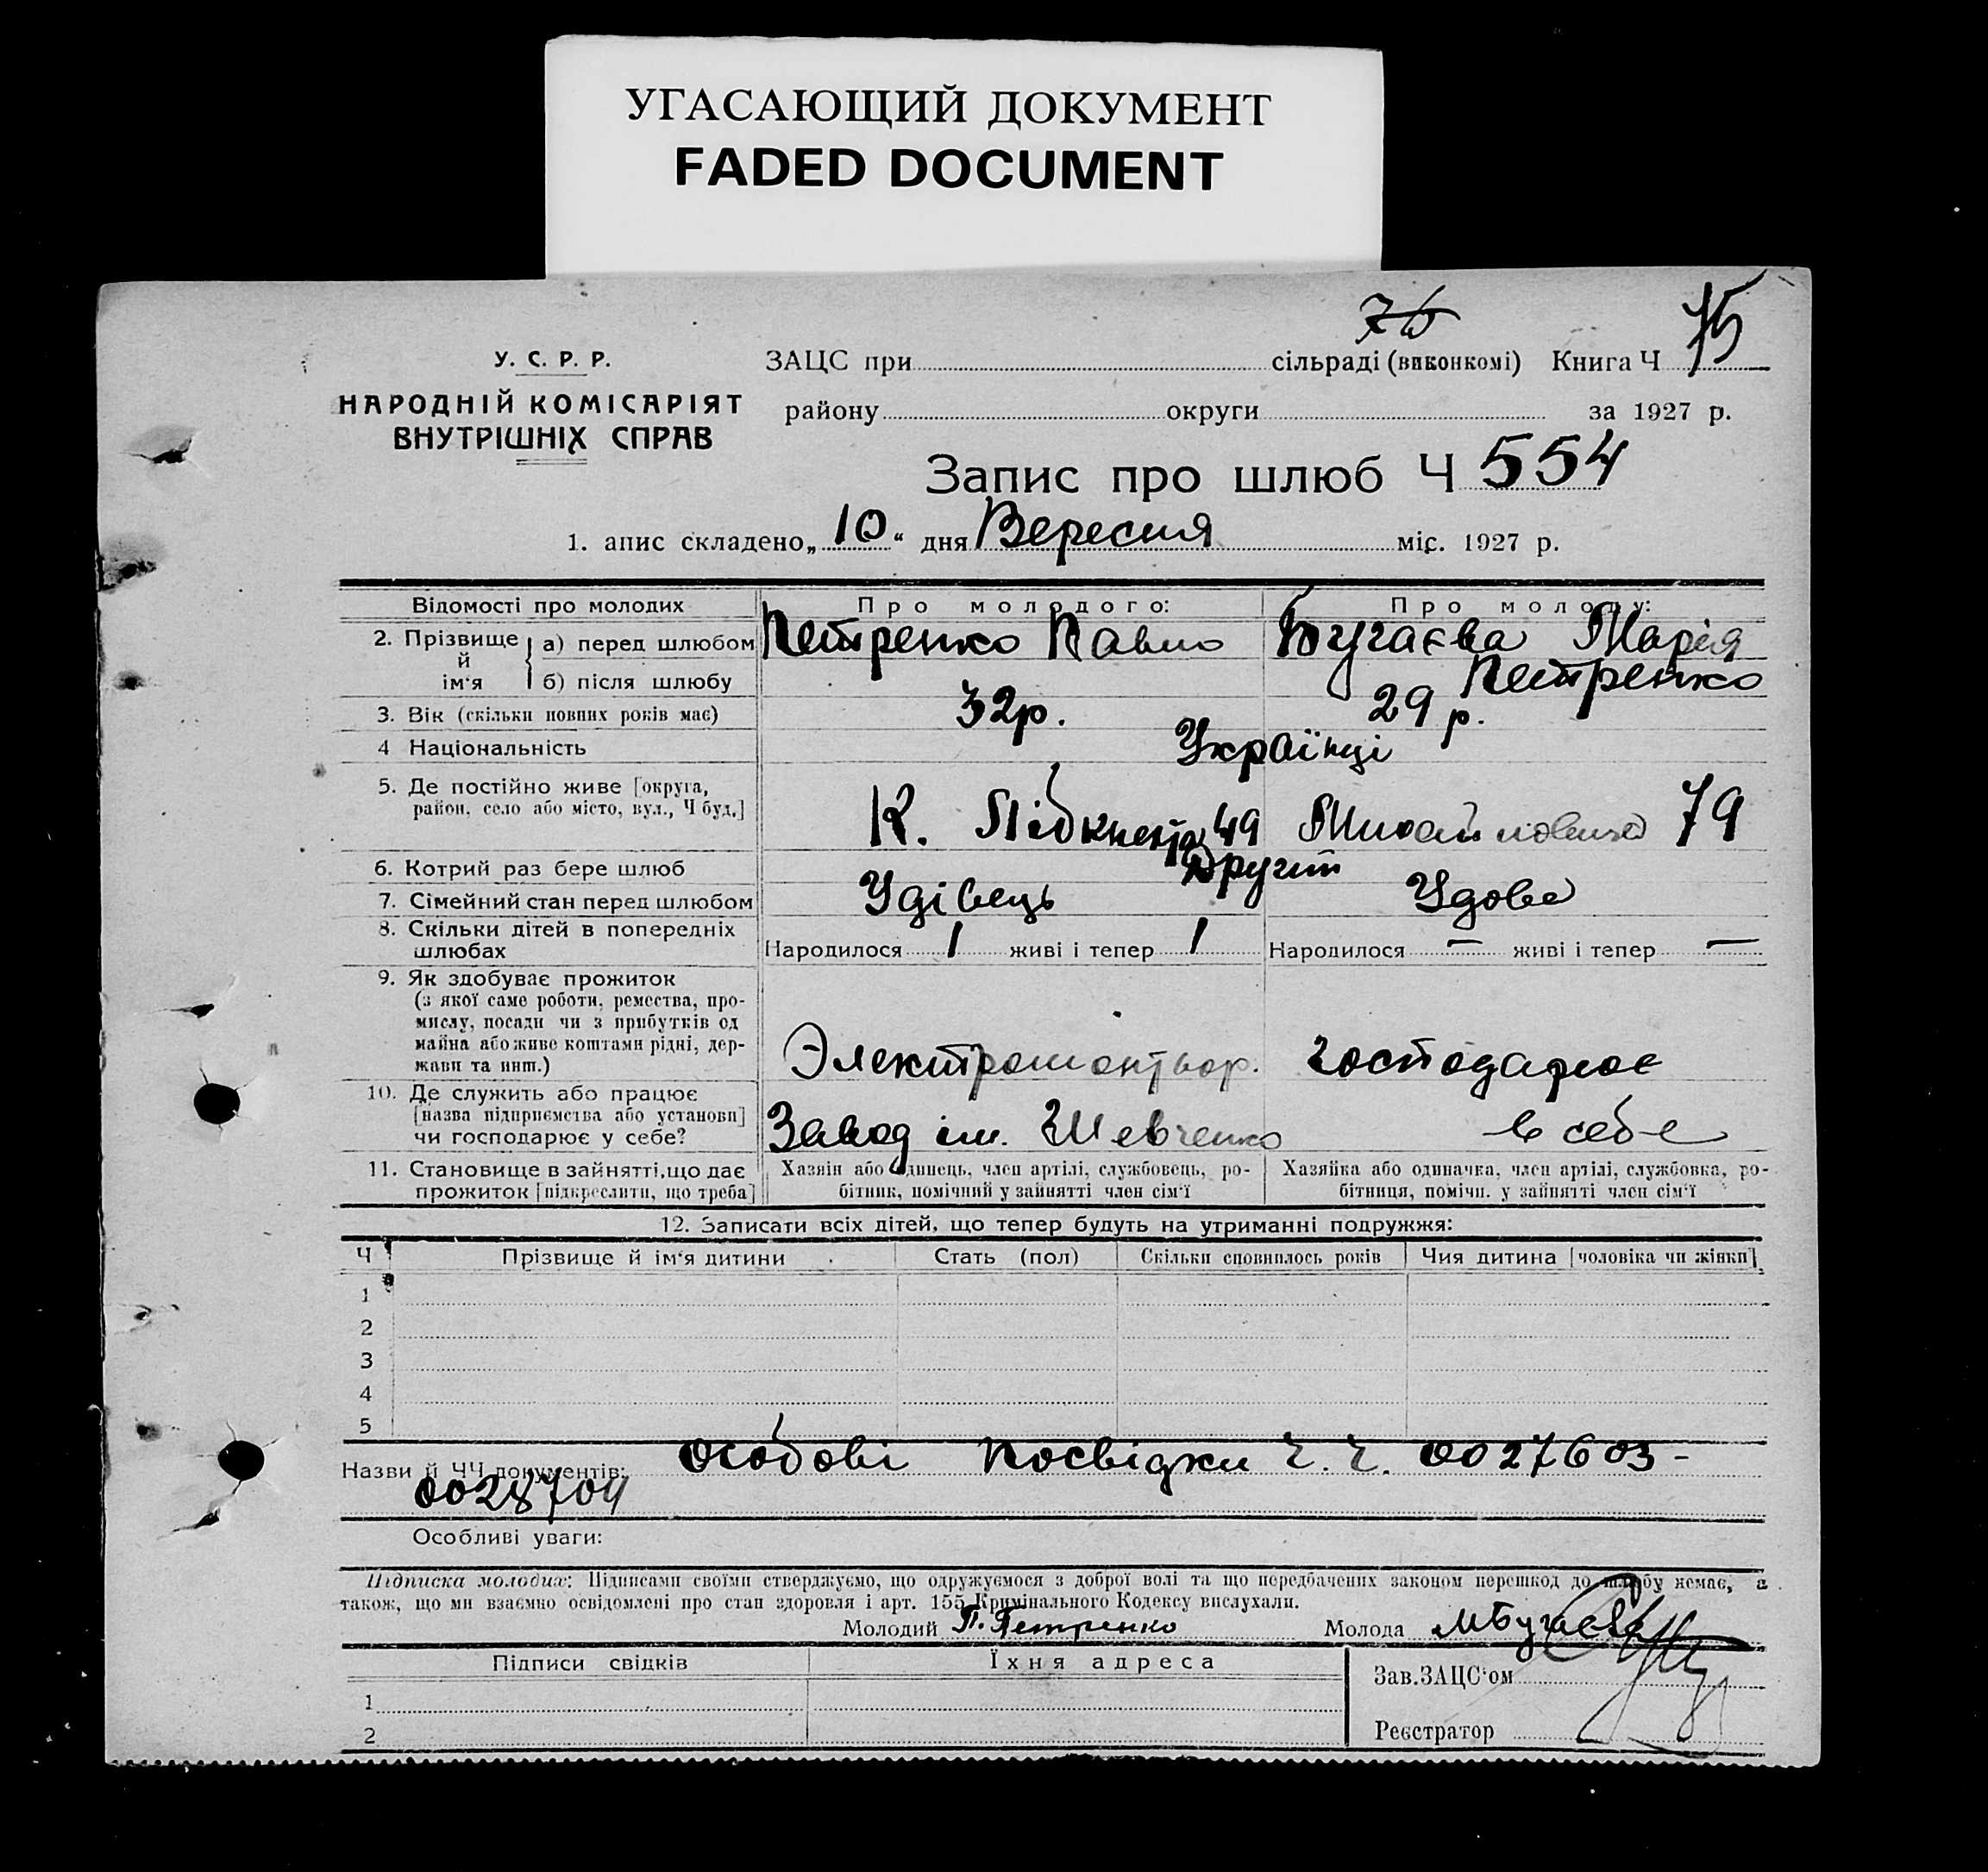 УГАСАЮЩИЙ ДОКУМЕНТ
FADED DOCUMENT
75
У. С. Р. Р.
ЗАЦС при сільраді (виконкомі) Книга Ч 75
НАРОДНІЙ КОМІСАРІЯТ
ВНУТРІШНІХ СПРАВ
району округи за 1927 р.
Запис про шлюб Ч 554
1. апис складено „10“ дня Вересня міс. 1927 р.
Відомості про молодих Про молодого: Про молоду:
2. Прізвище й ім‘я а) перед шлюбом Петренко Павло Бугаєва Марія
б) після шлюбу Петренко
3. Вік (скільки повних років має) 32р. 29 р.
4 Національність Українці
5. Де постійно живе [округа,
район, село або місто, вул., Ч буд.] К. Лібкнехта 49 79
6. Котрий раз бере шлюб Другий
7. Сімейний стан перед шлюбом Удівець Удова
8. Скільки дітей в попередніх
шлюбах Народилося 1 живі і тепер 1 Народилося — живі і тепер —
9. Як здобуває прожиток
(з якої саме роботи, ремества, про-
мислу, посади чи з прибутків од
майна або живе коштами рідні, дер-
жави та инш.) Электромонтьор. господарює
10. Де служить або працює
[назва підприємства або установи]
чи господарює у себе? Завод ім. Шевченко в себе
11. Становище в зайнятті, що дає
прожиток [підкреслити, що треба]
Хазяін або одинець, член артілі, службовець, ро-
бітник, помічний у зайнятті член сім‘ї
Хазяйка або одиначка, член артілі, службовка, ро-
бітниця, помічн. у зайнятті член сім‘ї
12. Записати всіх дітей, що тепер будуть на утриманні подружжя:
Ч Прізвище й ім‘я дитини Стать (пол) Скільки сповнилось років Чия дитина [чоловіка чи жінки]
1
2
3
4
5
Назви й ЧЧ документів: Особові посвідки ч.ч. 0027603-
0028704
Особливі уваги:
Підписка молодих: Підписами своїми стверджуємо, що одружуємося з доброї волі та що передбачених законом перешкод до шлюбу немає, а
також, що ми взаємно освідомлені про стан здоровля і арт. 155 Кримінального Кодексу вислухали.
Молодий П. Петренко Молода МБугаєва
Підписи свідків Їхня адреса
Зав.ЗАЦС‘ом
1
2
Реєстратор